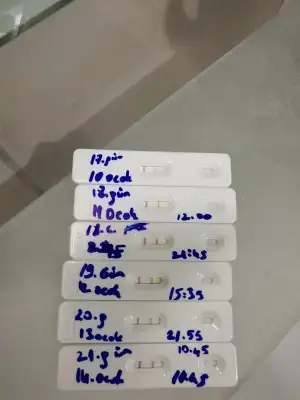 17.gün
10 ocak
18.gün
11 Ocak 12.00
18.
21:45
19.Gün
ocak 15:35
20.g
13 ocak 21.55
21.gün 10.45
14.ocak